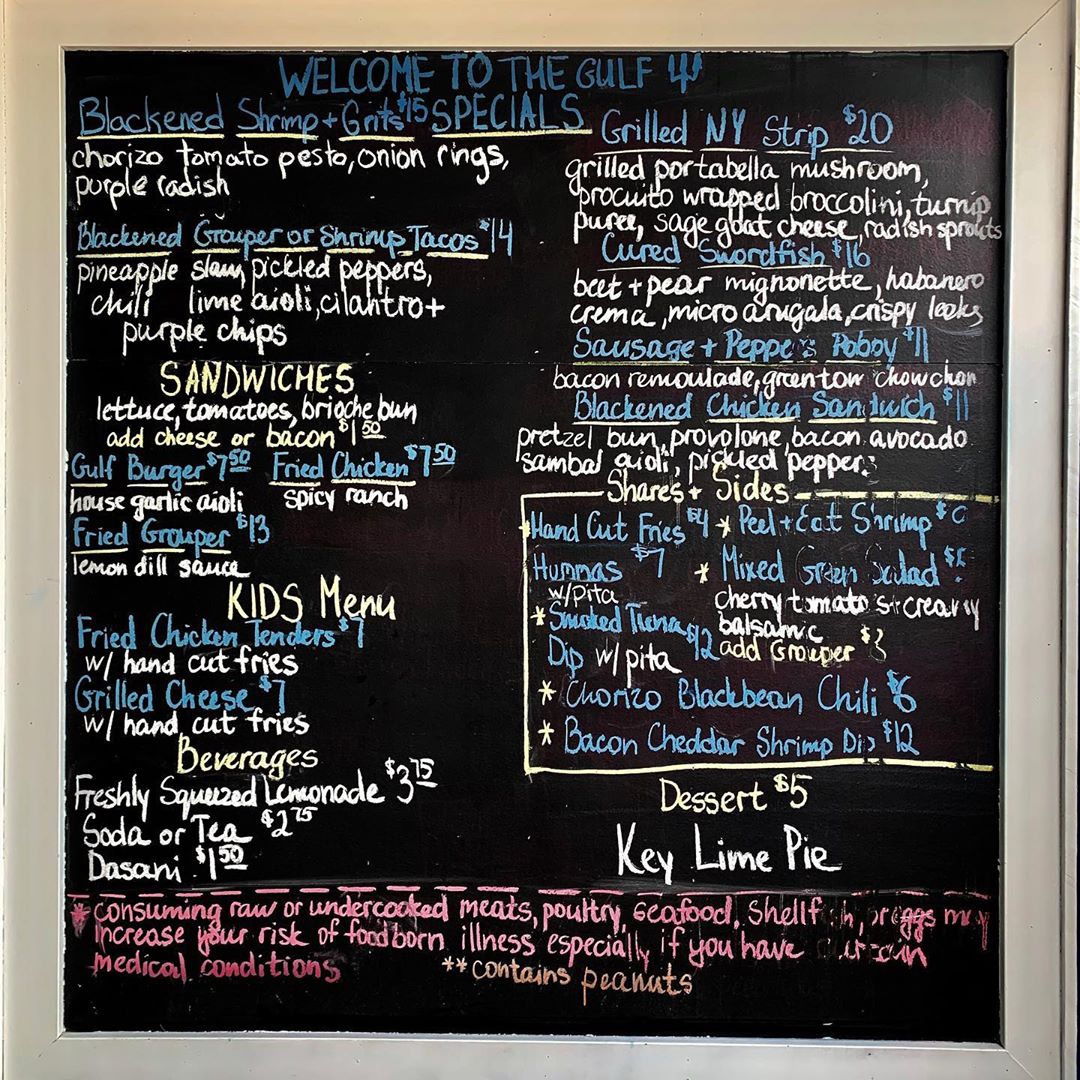 WELCOME TO THE GULF
Blackened Shrimp + Grits $15 SPECIALS
chorizo tomato pesto, onion rings,
purple radish
Blackened Grouper or Shrimp Tacos $14
pineapple slaw, pickled peppers,
chili lime aioli, cilantro +
purple chips
SANDWICHES
lettuce, tomatoes, brioche bun
add cheese or bacon $1 50
Gulf Burger $7 50 Fried Chicken $7 50
house garlic aioli spicy ranch
Fried Grouper $13
lemon dill sauce
KIDS Menu
Fried Chicken Tenders $7
w/ hand cut fries
Grilled Cheese $7
w/ hand cut fries
Beverages
Freshly Squeezed Lemonade $3 75
Soda or Tea $2 75
Dasani $1 50
Grilled NY Strip $20
grilled portabella mushroom,
procuito wrapped broccolini, turnip
puree, sage goat cheese, radish sprouts
Cured Swordfish $16
beet + pear mignonette, habanero
crema, micro arugala, crispy leeks
Sausage + Peppers Poboy $11
bacon remoulade, green tom chow chow
Blackened Chicken Sandwich $11
pretzel bun, provolone, bacon avocado
sambal aioli, pickled peppers
Shares + Sides
*Hand Cut Fries $4
Hummas $7
w/pita
*Smoked Tuna $12
Dip w/ pita
* Peel + Eat Shrimp
* Mixed Green Salad
cherry tomatos + creamy
balsamic
add Grouper
* Chorizo Blackbean Chili $6
* Bacon Cheddar Shrimp Dip $12
Dessert $5
Key Lime Pie
* consuming raw or undercooked meats, poultry, seafood, shellfish, or eggs may
increase your risk of foodborn illness especially if you have certain
medical conditions
**contains peanuts